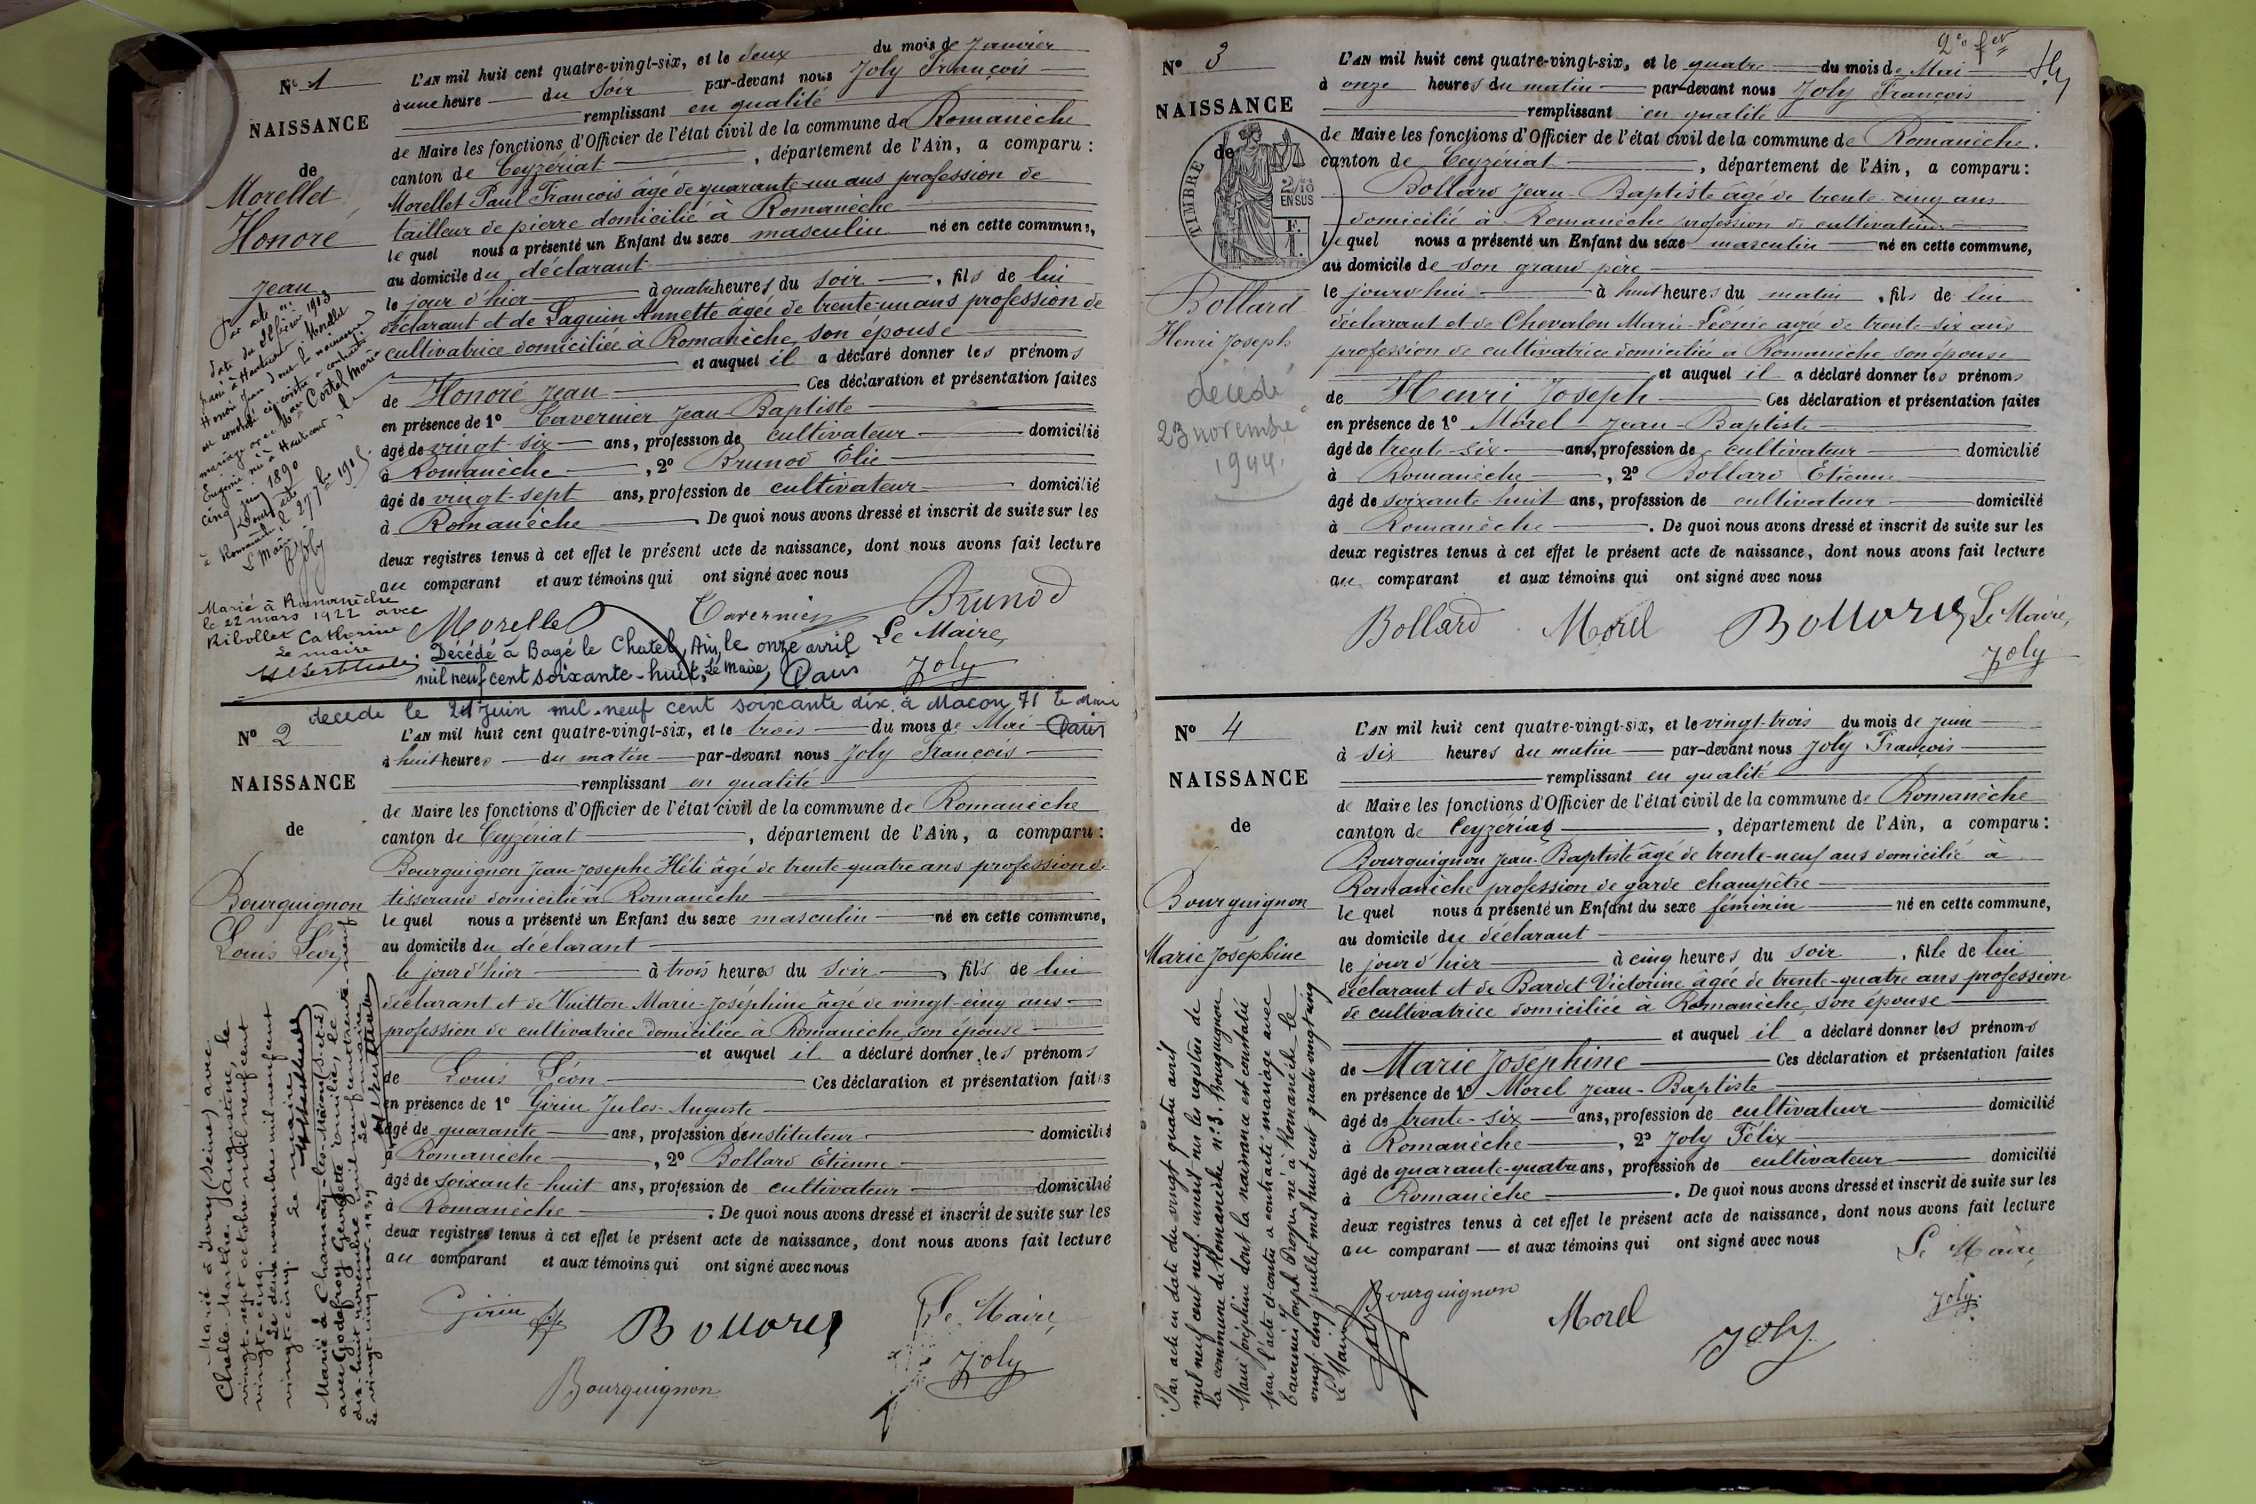 N° 1
NAISSANCE
de
Morellet
Honoré
Jean
L'AN mil huit cent quatre-vingt-six, et le deux du mois de Janvier
à une heure du Soir par-devant nous Joly François
remplissant en qualité
de Maire les fonctions d'Officier de l'état civil de la commune de Romanèche
canton de Ceyzériat, département de l'Ain, a comparu :
Morellet Paul François âgé de quarante-un ans profession de
tailleur de pierre domicilié à Romanèche
le quel nous a présenté un Enfant du sexe masculin né en cette commune,
au domicile du déclarant
le jour d'hier à quatre heures du soir, fils de lui
déclarant et de Laguin Annette âgée de trente-un ans profession de
cultivatrice domiciliée à Romanèche, son épouse
et auquel il a déclaré donner les prénoms
de Honoré Jean Ces déclaration et présentation faites
en présence de 1° Tavernier Jean Baptiste
âgé de vingt-six ans, profession de cultivateur domicilié
à Romanèche, 2° Brunod Élie
âgé de vingt-sept ans, profession de cultivateur domicilié
à Romanèche. De quoi nous avons dressé et inscrit de suite sur les
deux registres tenus à cet effet le présent acte de naissance, dont nous avons fait lecture
au comparant et aux témoins qui ont signé avec nous
Morellet Tavernier Brunod
Le Maire,
Joly
Par acte en
date du février 1913
Honoré Jean dont la naissance
est constatée ci-contre a contracté
mariage avec Cortel Marie
Eugénie née à Hauteville le
cinq juin 1890
Dont acte
à Romanèche le 27 7bre 1915
Le Maire
Joly
Marié à Romanèche
le 22 mars 1922 avec
Ribollet Catherine
Le maire
Décédé à Bagé le Chatel, Ain, le onze avril
mil neuf cent soixante-huit, Le Maire,
décédé le 21 Juin mil neuf cent soixante dix à Macon 71 Le Maire
N° 2
NAISSANCE
de
Bourguignon
Louis Léon
L'AN mil huit cent quatre-vingt-six, et le trois du mois de Mai
à huit heures du matin par-devant nous Joly François
remplissant en qualité
de Maire les fonctions d'Officier de l'état civil de la commune de Romanèche
canton de Ceyzériat, département de l'Ain, a comparu :
Bourguignon Jean Josephe Héli âgé de trente-quatre ans profession de
tisserand domicilié à Romanèche
le quel nous a présenté un Enfant du sexe masculin né en cette commune,
au domicile du déclarant
le jour d'hier à trois heures du soir, fils de lui
déclarant et de Vuitton Marie-Joséphine âgé de vingt-cinq ans
profession de cultivatrice domiciliée à Romanèche, son épouse
et auquel il a déclaré donner les prénoms
de Louis Léon Ces déclaration et présentation faites
en présence de 1° Girin Jules-Auguste
âgé de quarante ans, profession d'instituteur domicilié
à Romanèche, 2° Bollard Etienne
âgé de soixante-huit ans, profession de cultivateur domicilié
à Romanèche. De quoi nous avons dressé et inscrit de suite sur les
deux registres tenus à cet effet le présent acte de naissance, dont nous avons fait lecture
au comparant et aux témoins qui ont signé avec nous
Girin Bollard Le Maire,
Joly
Bourguignon
Marié à Ivry (Seine) avec
Chelle Marthe Faugustine, le
vingt-sept octobre mil neuf cent
vingt-cinq.
Le deux novembre mil neuf cent
vingt-cinq. Le maire
Marié à Charnay-les-Mâcon (S.et.L)
avec Godefroy Georgette Emilie, le
dix-huit novembre mil neuf cent trente-neuf
Le vingt-cinq nov. 1939 Le maire
N° 3
NAISSANCE
de
TIMBRE
2/10
EN SUS
F.
1.
Bollard
Henri Joseph
décédé
23 novembre
1944.
L'AN mil huit cent quatre-vingt-six, et le quatre du mois de Mai
à onze heures du matin par-devant nous Joly François
remplissant en qualité
de Maire les fonctions d'Officier de l'état civil de la commune de Romanèche.
canton de Ceyzériat, département de l'Ain, a comparu :
Bollard Jean-Baptiste âgé de trente-cinq ans
domicilié à Romanèche profession de cultivateur
le quel nous a présenté un Enfant du sexe masculin né en cette commune,
au domicile de son grand père
le jourd'hui à huit heures du matin, fils de lui
déclarant et de Chevalon Marie-Léonie âgée de trente-six ans
profession de cultivatrice domiciliée à Romanèche son épouse
et auquel il a déclaré donner les prénoms
de Henri Joseph Ces déclaration et présentation faites
en présence de 1° Morel Jean-Baptiste
âgé de trente-six ans, profession de cultivateur domicilié
à Romanèche, 2° Bollard Etienne
âgé de soixante huit ans, profession de cultivateur domicilié
à Romanèche. De quoi nous avons dressé et inscrit de suite sur les
deux registres tenus à cet effet le présent acte de naissance, dont nous avons fait lecture
au comparant et aux témoins qui ont signé avec nous
Bollard Morel Bollard Le Maire,
Joly
N° 4
NAISSANCE
de
Bourguignon
Marie Joséphine
L'AN mil huit cent quatre-vingt-six, et le vingt-trois du mois de Juin
à six heures du matin par-devant nous Joly François
remplissant en qualité
de Maire les fonctions d'Officier de l'état civil de la commune de Romanèche
canton de Ceyzériat, département de l'Ain, a comparu :
Bourguignon Jean-Baptiste âgé de trente-neuf ans domicilié à
Romanèche profession de garde champêtre
le quel nous a présenté un Enfant du sexe féminin né en cette commune,
au domicile du déclarant
le jour d'hier à cinq heures du soir, fille de lui
déclarant et de Bardet Victorine âgée de trente-quatre ans profession
de cultivatrice domiciliée à Romanèche, son épouse
et auquel il a déclaré donner les prénoms
de Marie Joséphine Ces déclaration et présentation faites
en présence de 1° Morel Jean-Baptiste
âgé de trente-six ans, profession de cultivateur domicilié
à Romanèche, 2° Joly Félix
âgé de quarante-quatre ans, profession de cultivateur domicilié
à Romanèche. De quoi nous avons dressé et inscrit de suite sur les
deux registres tenus à cet effet le présent acte de naissance, dont nous avons fait lecture
au comparant et aux témoins qui ont signé avec nous
Bourguignon Morel Joly Le Maire,
Joly
Par acte en date du vingt quatre avril
mil neuf cent neuf inscrit sur les registres de
la commune de Romanèche n° 3. Bourguignon
Marie Joséphine dont la naissance est constatée
par l'acte ci-contre a contracté mariage avec
Tavernier Joseph Prosper né à Romanèche le
vingt cinq juillet mil huit cent quatre vingt cinq
Le Maire